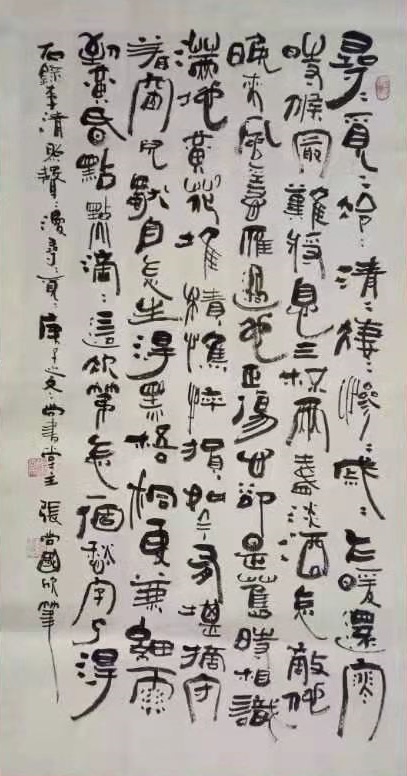 尋:覓:冷:清:悽:慘:戚:乍暖還寒
時候最難將息三杯兩盞淡酒怎敵他
晚來風急雁過也正傷心卻是舊時相識
滿地黃花堆積憔悴損如今有堪摘守
著窗兒獨自怎生得黑梧桐更兼細雨
到黃昏點點滴:這次第怎一個愁字了得
右錄李清照聲:慢尋:覓:庚子曲書堂主張尚國欣筆